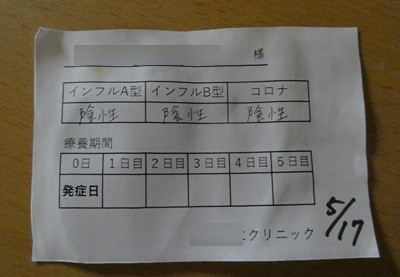 様
インフルA型 インフルB型 コロナ
陰性 陰性 陰性
療養期間
0日 1日目 2日目 3日目 4日目 5日目
発症日
クリニック
5/17